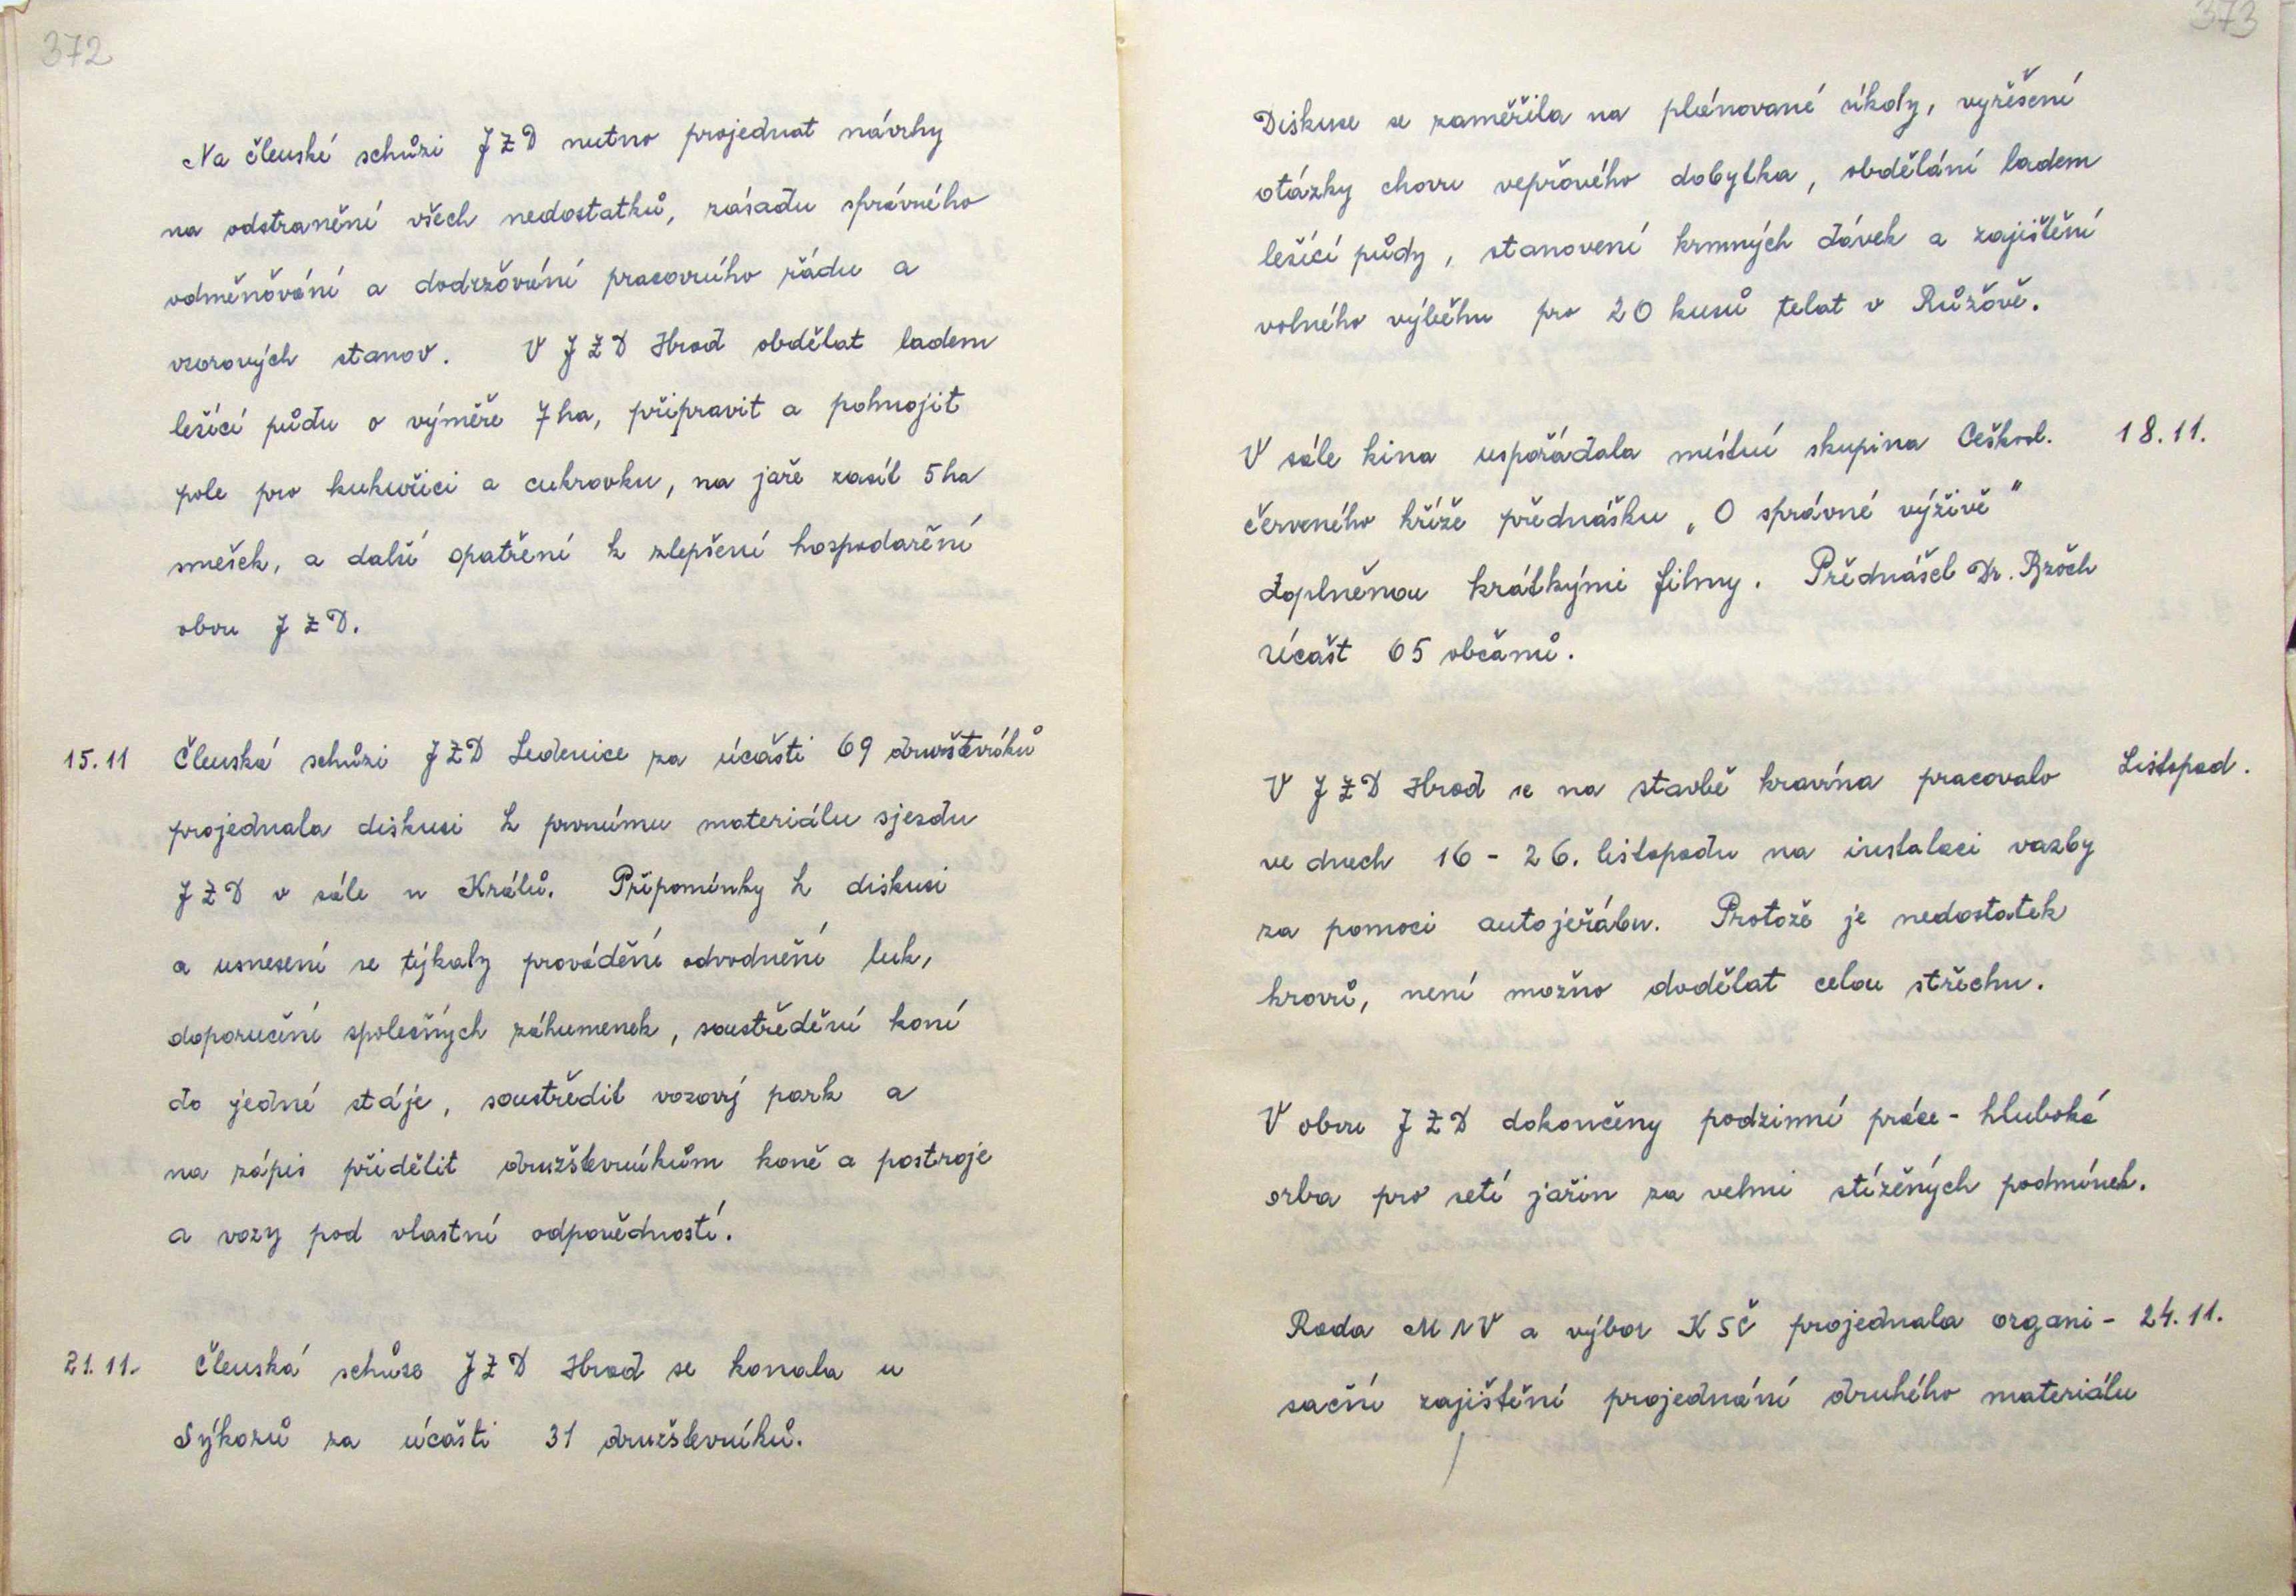 372
Na členské schůzi JZD nutno projednat návrhy
na odstranění všech nedostatků, zásadu správného
odměňování a dodržování pracovního řádu a
vzorových stanov. V JZD Hrad obdělat ladem
ležící půdu o výměře 7 ha, připravit a pohnojit
pole pro kukuřici a cukrovku, na jaře zasít 5 ha
směsek, a další opatření k zlepšení hospodaření
obou JZD.
15.11 Členská schůzi JZD Ledenice za účasti 69 družstevníků
projednala diskusi k prvnímu materiálu sjezdu
JZD v sále u Králů. Připomínky k diskusi
a usnesení se týkaly provádění odvodnění luk,
doporučení společných záhumenek, soustředění koní
do jedné stáje, soustředit vozový park a
na zápis přidělit družstevníkům koně a postroje
a vozy pod vlastní odpovědností.
21.11. Členská schůze JZD Hrad se konala u
Sýkorů za účasti 31 družstevníků.
373
Diskuse se zaměřila na plánované úkoly, vyřešení
otázky chovu vepřového dobytka, obdělání ladem
ležící půdy, stanovení krmných dávek a zajištění
volného výběhu pro 20 kusů telat v Růžově.
V sále kina uspořádala místní skupina Českosl. 18.11.
červeného kříže přednášku „O správné výživě"
doplněnou krátkými filmy. Přednášel Dr.
Účast 65 občanů.
V JZD Hrad se na stavbě kravína pracovalo Listopad.
ve dnech 16 - 26. listopadu na instalaci vazby
za pomoci autojeřábu. Protože je nedostatek
krovů, není možno dodělat celou střechu.
V obou JZD dokončeny podzimní práce - hluboká
orba pro setí jařin za velmi stížených podmínek.
Rada MNV a výbor KSČ projednala organi- 24.11.
sační zajištění projednání druhého materiálu